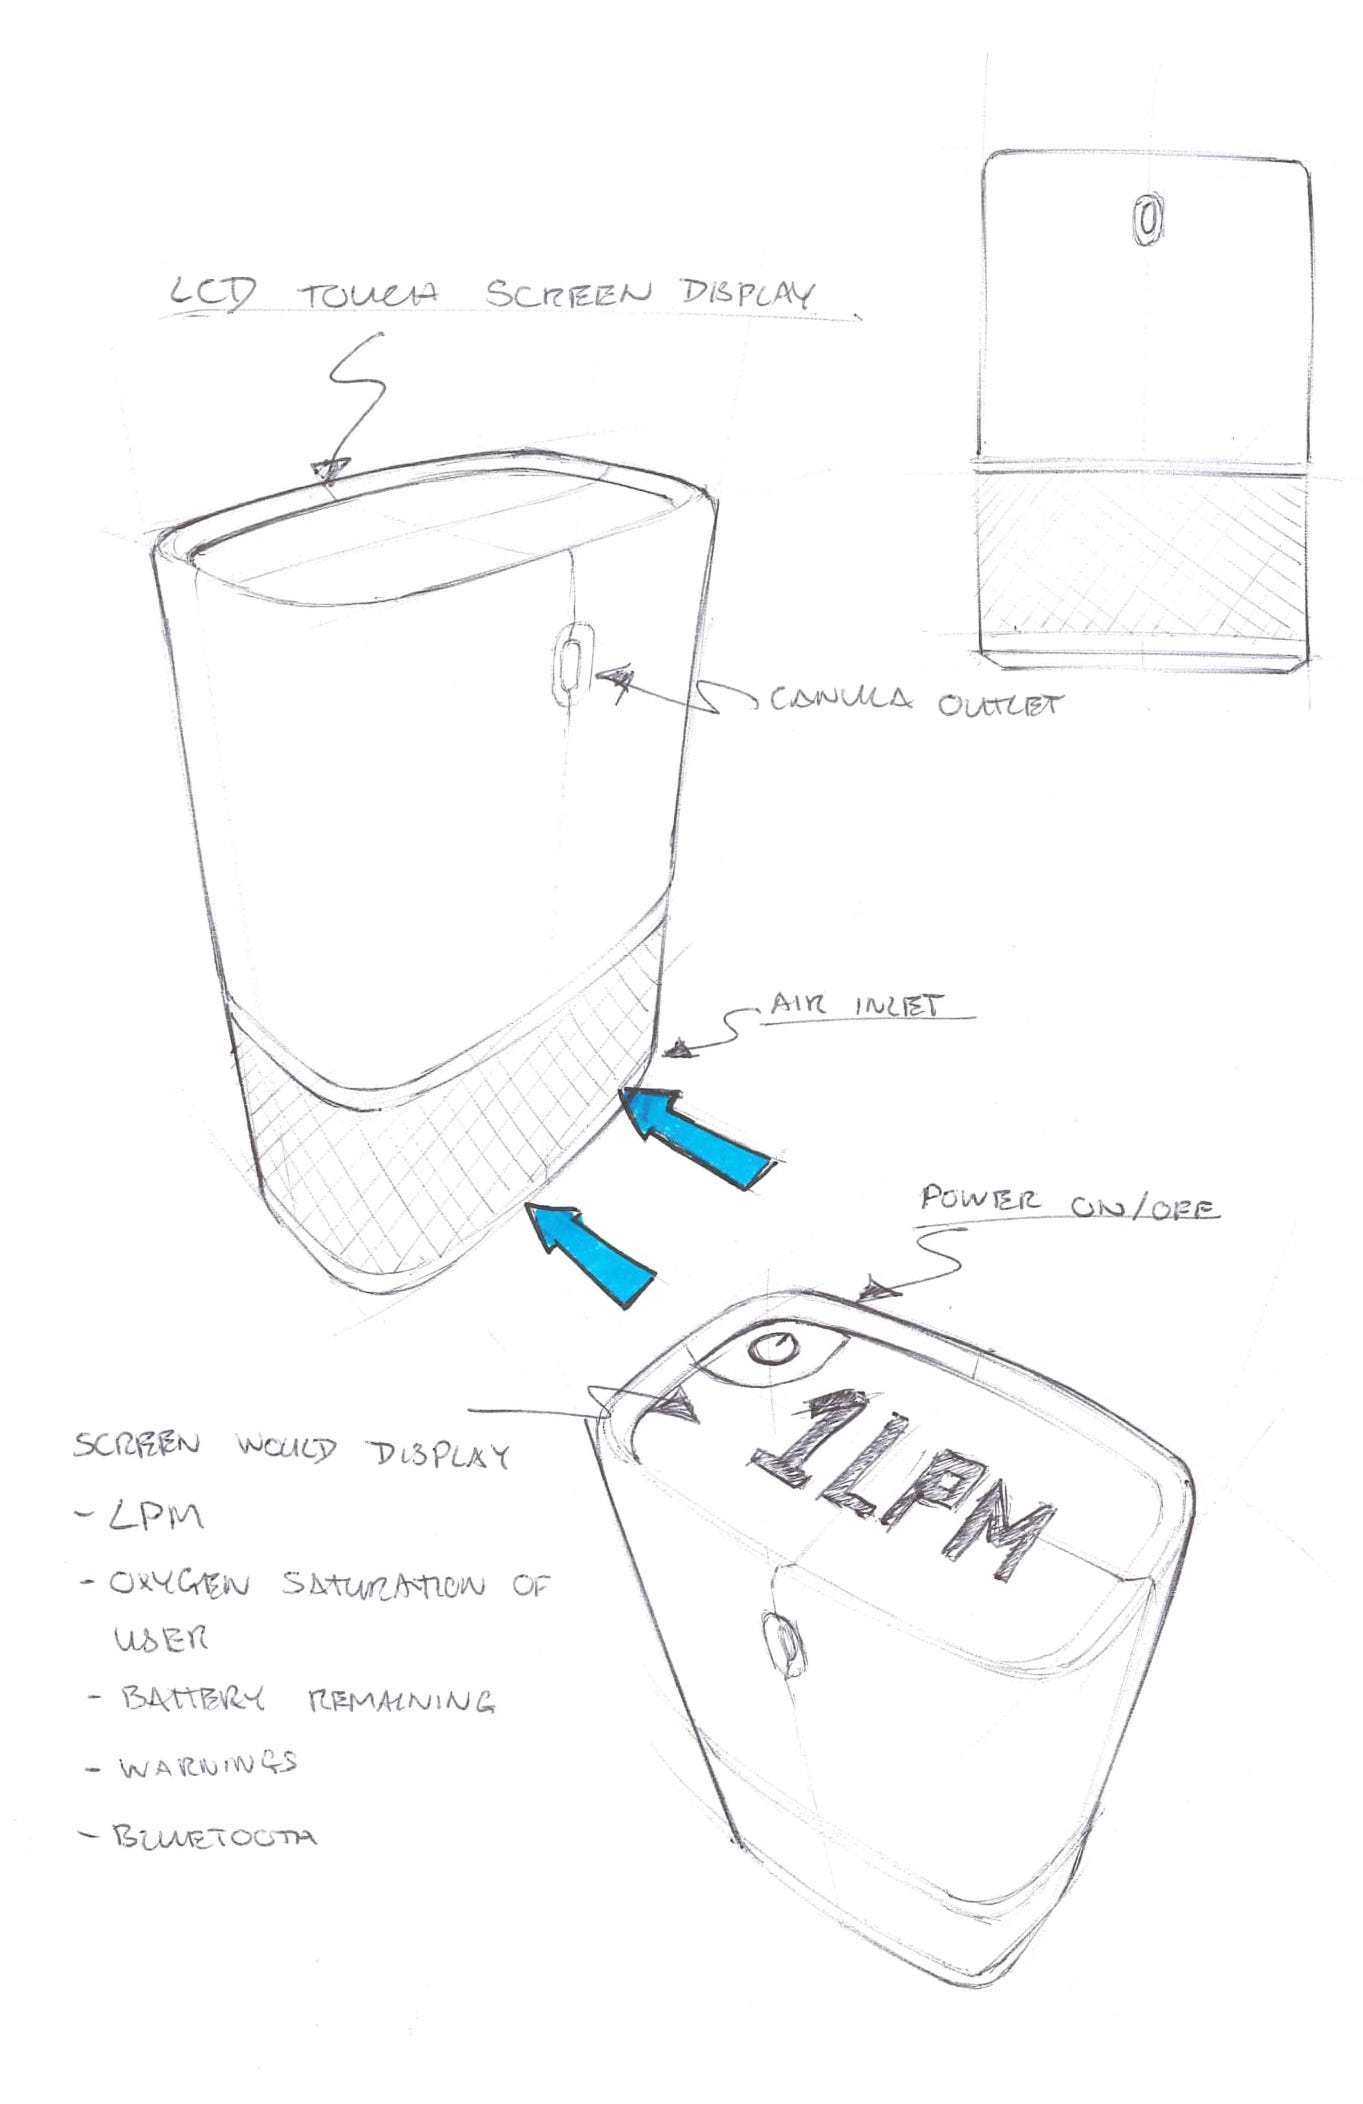 LCD TOUCH SCREEN DISPLAY
CANULA OUTLET
AIR INLET
POWER ON/OFF
1LPM
SCREEN WOULD DISPLAY
- LPM
- OXYGEN SATURATION OF
USER
- BATTERY REMAINING
- WARNINGS
- BLUETOOTH